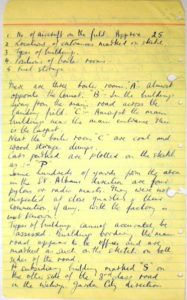 1. No of aircraft on the field. Approx. 25
2. Locations of entrances marked on sketch
3. Types of buildings.
4. Locations of boiler rooms.
5. Fuel storage.
There are three boiler rooms. A. almost
opposite the Comet. B. In the building
away from the main road across the
landing field C - Amongst the main
buildings near the main entrance. This
is the largest.
Near the boiler room "C" are coal and
wood storage dumps.
Car parks are plotted on the sketch
as :- "P"
Some hundreds of yards from the
on the St Albans direction are four
pylons or radio masts. They were not
inspected at close quarters & their
connection if any, with the factory is
not known.
Types of buildings cannot accurately be
assessed. Buildings bordering the main
road appear to be offices and are
marked as such on the sketch on both
sides of the road.
A subsidiary building marked S on
the other side of the road
on the Welwyn Garden City direction